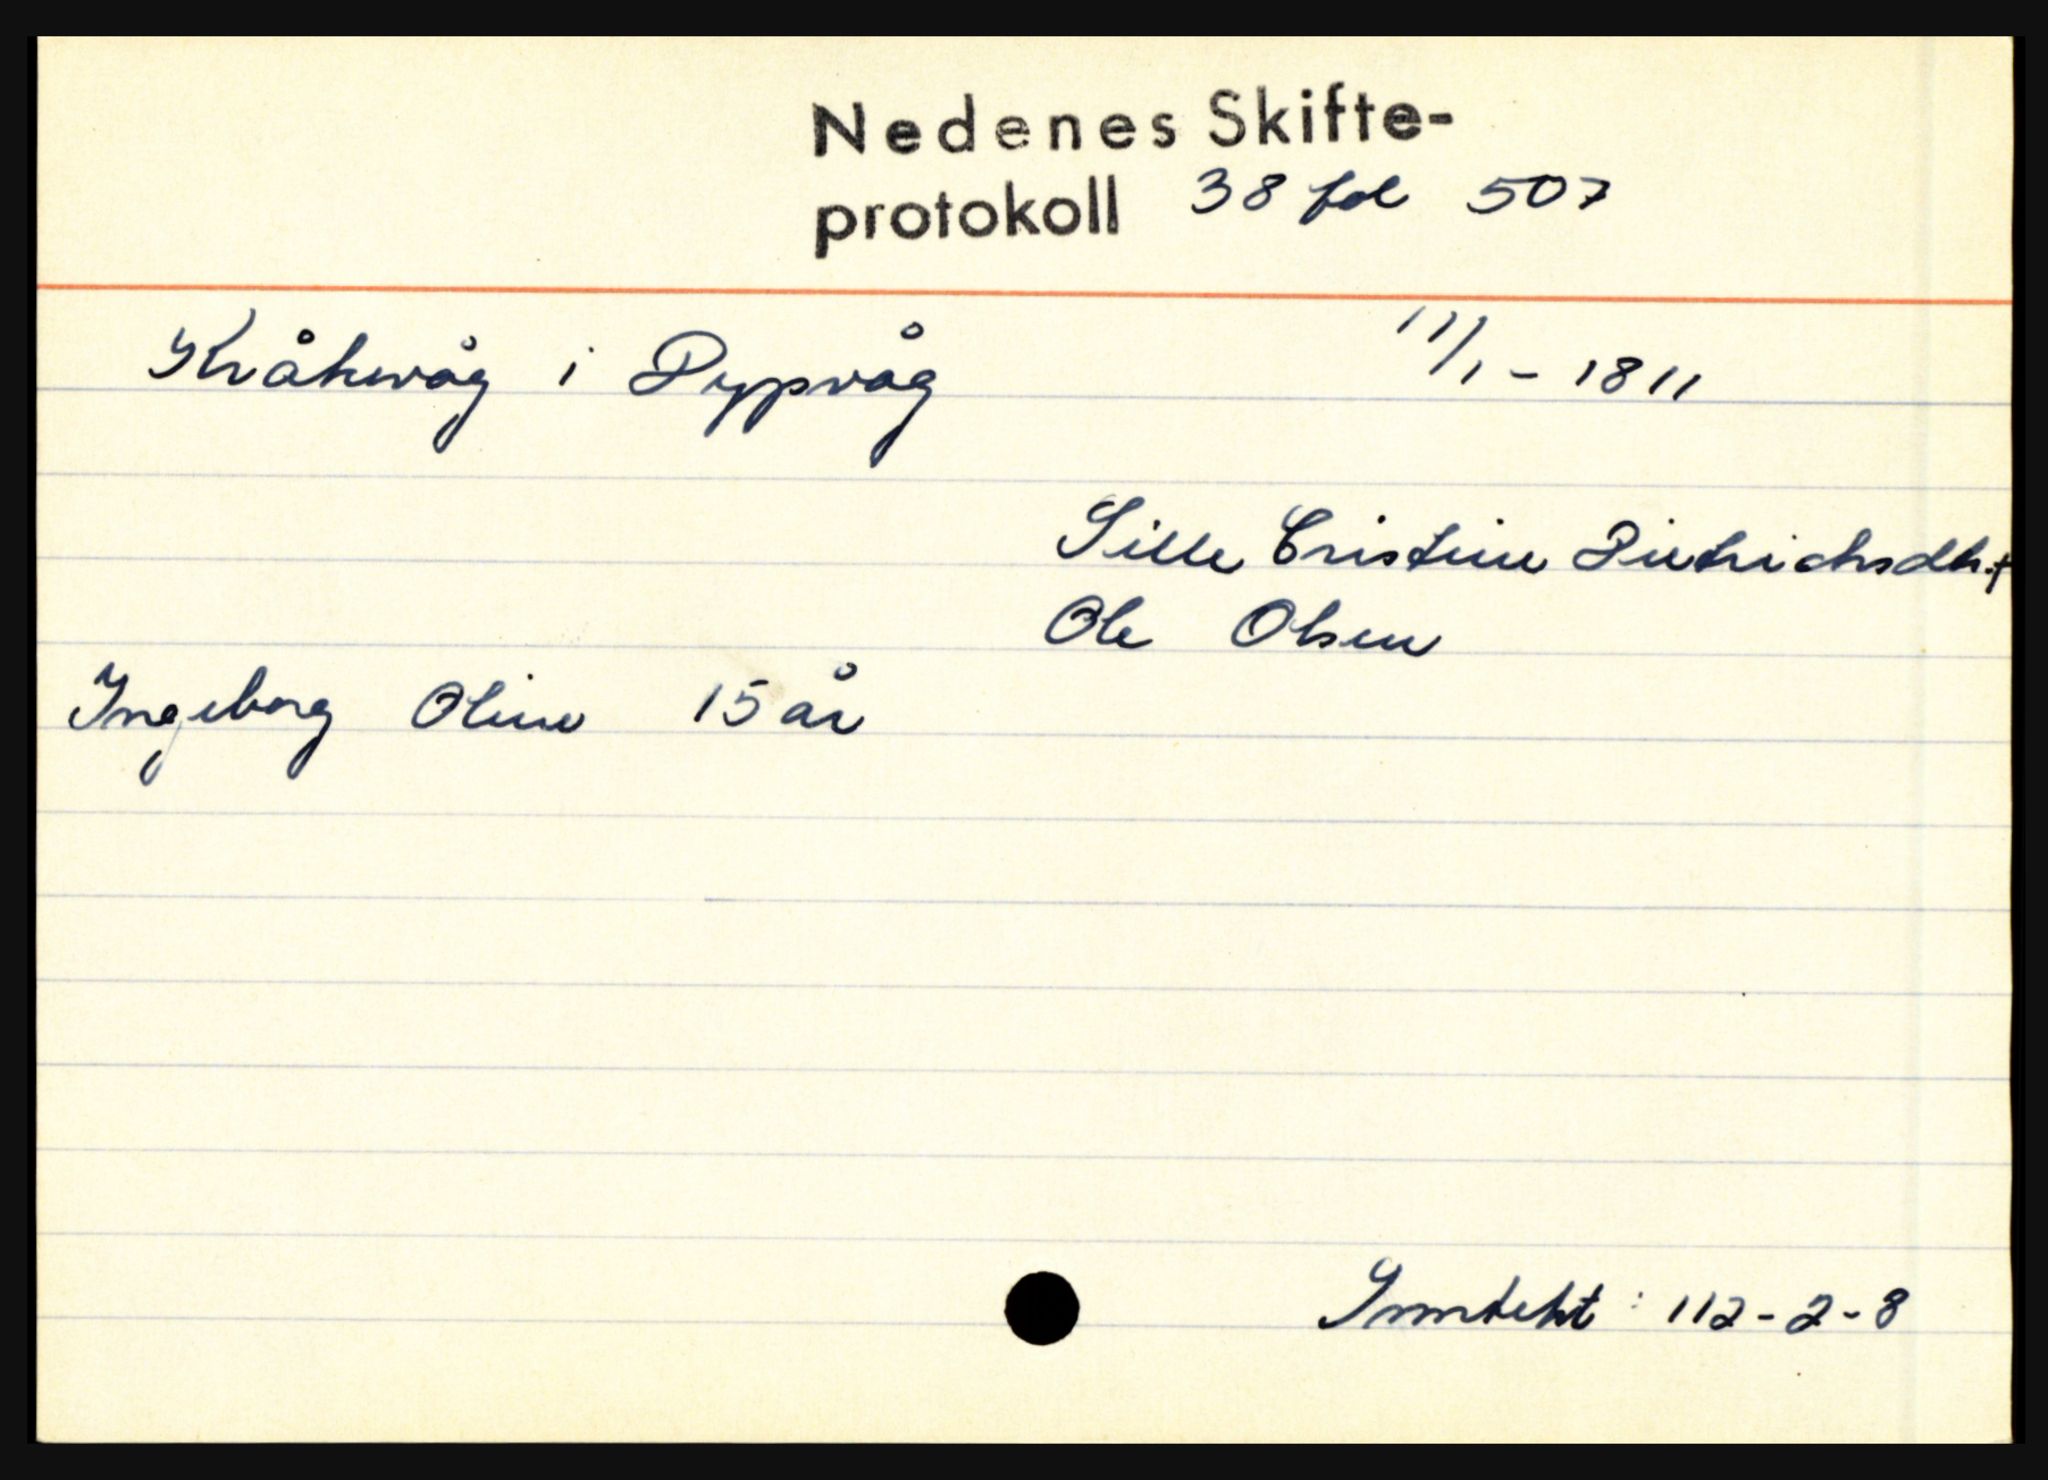 Nedenes Skifte-
protokoll 38 fol 507
Kråkevåg i Dypvåg 11/1 - 1811
Sille Cristine Dietrichsdtr. +
Ole Olsen
Ingeborg Oline 15 år
Inntekt : 112 - 2 - 8